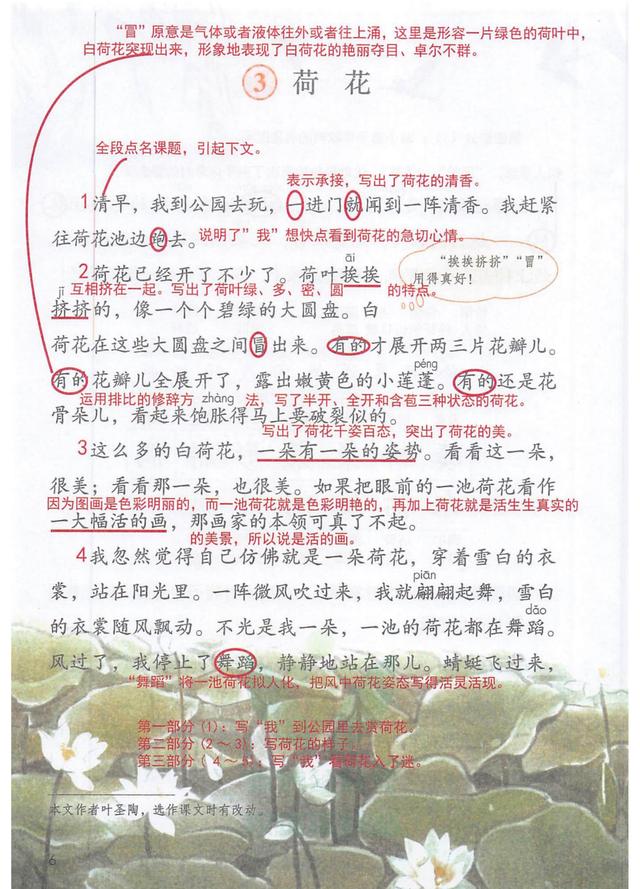 “冒”原意是气体或者液体往外或者往上涌，这里是形容一片绿色的荷叶中，
白荷花突现出来，形象地表现了白荷花的艳丽夺目、卓尔不群。
3 荷花
全段点名课题，引起下文。
表示承接，写出了荷花的清香。
1清早，我到公园去玩，一进门就闻到一阵清香。我赶紧
往荷花池边跑去。
说明了“我”想快点看到荷花的急切心情。
āi
2荷花已经开了不少了。荷叶挨挨
“挨挨挤挤”“冒”
用得真好！
jǐ
互相挤在一起。写出了荷叶绿、多、密、圆 的特点。
挤挤的，像一个个碧绿的大圆盘。白
荷花在这些大圆盘之间冒出来。有的才展开两三片花瓣儿。
péng
有的花瓣儿全展开了，露出嫩黄色的小莲蓬。有的还是花
运用排比的修辞方 zhàng 法，写了半开、全开和含苞三种状态的荷花。
骨朵儿，看起来饱胀得马上要破裂似的。
写出了荷花千姿百态，突出了荷花的美。
3这么多的白荷花，一朵有一朵的姿势。看看这一朵，
很美；看看那一朵，也很美。如果把眼前的一池荷花看作
因为图画是色彩明丽的，而一池荷花就是色彩明艳的，再加上荷花就是活生生真实的
一大幅活的画，那画家的本领可真了不起。
的美景，所以说是活的画。
4我忽然觉得自己仿佛就是一朵荷花，穿着雪白的衣
piān
裳，站在阳光里。一阵微风吹过来，我就翩翩起舞，雪白
dǎo
的衣裳随风飘动。不光是我一朵，一池的荷花都在舞蹈。
风过了，我停止了舞蹈，静静地站在那儿。蜻蜓飞过来，
“舞蹈”将一池荷花拟人化，把风中荷花姿态写得活灵活现。
第一部分(1)：写“我”到公园里去赏荷花。
第二部分(2～3)：写荷花的样子。
第三部分(4～5)：写“我”看荷花入了迷。
本文作者叶圣陶，选作课文时有改动。
6